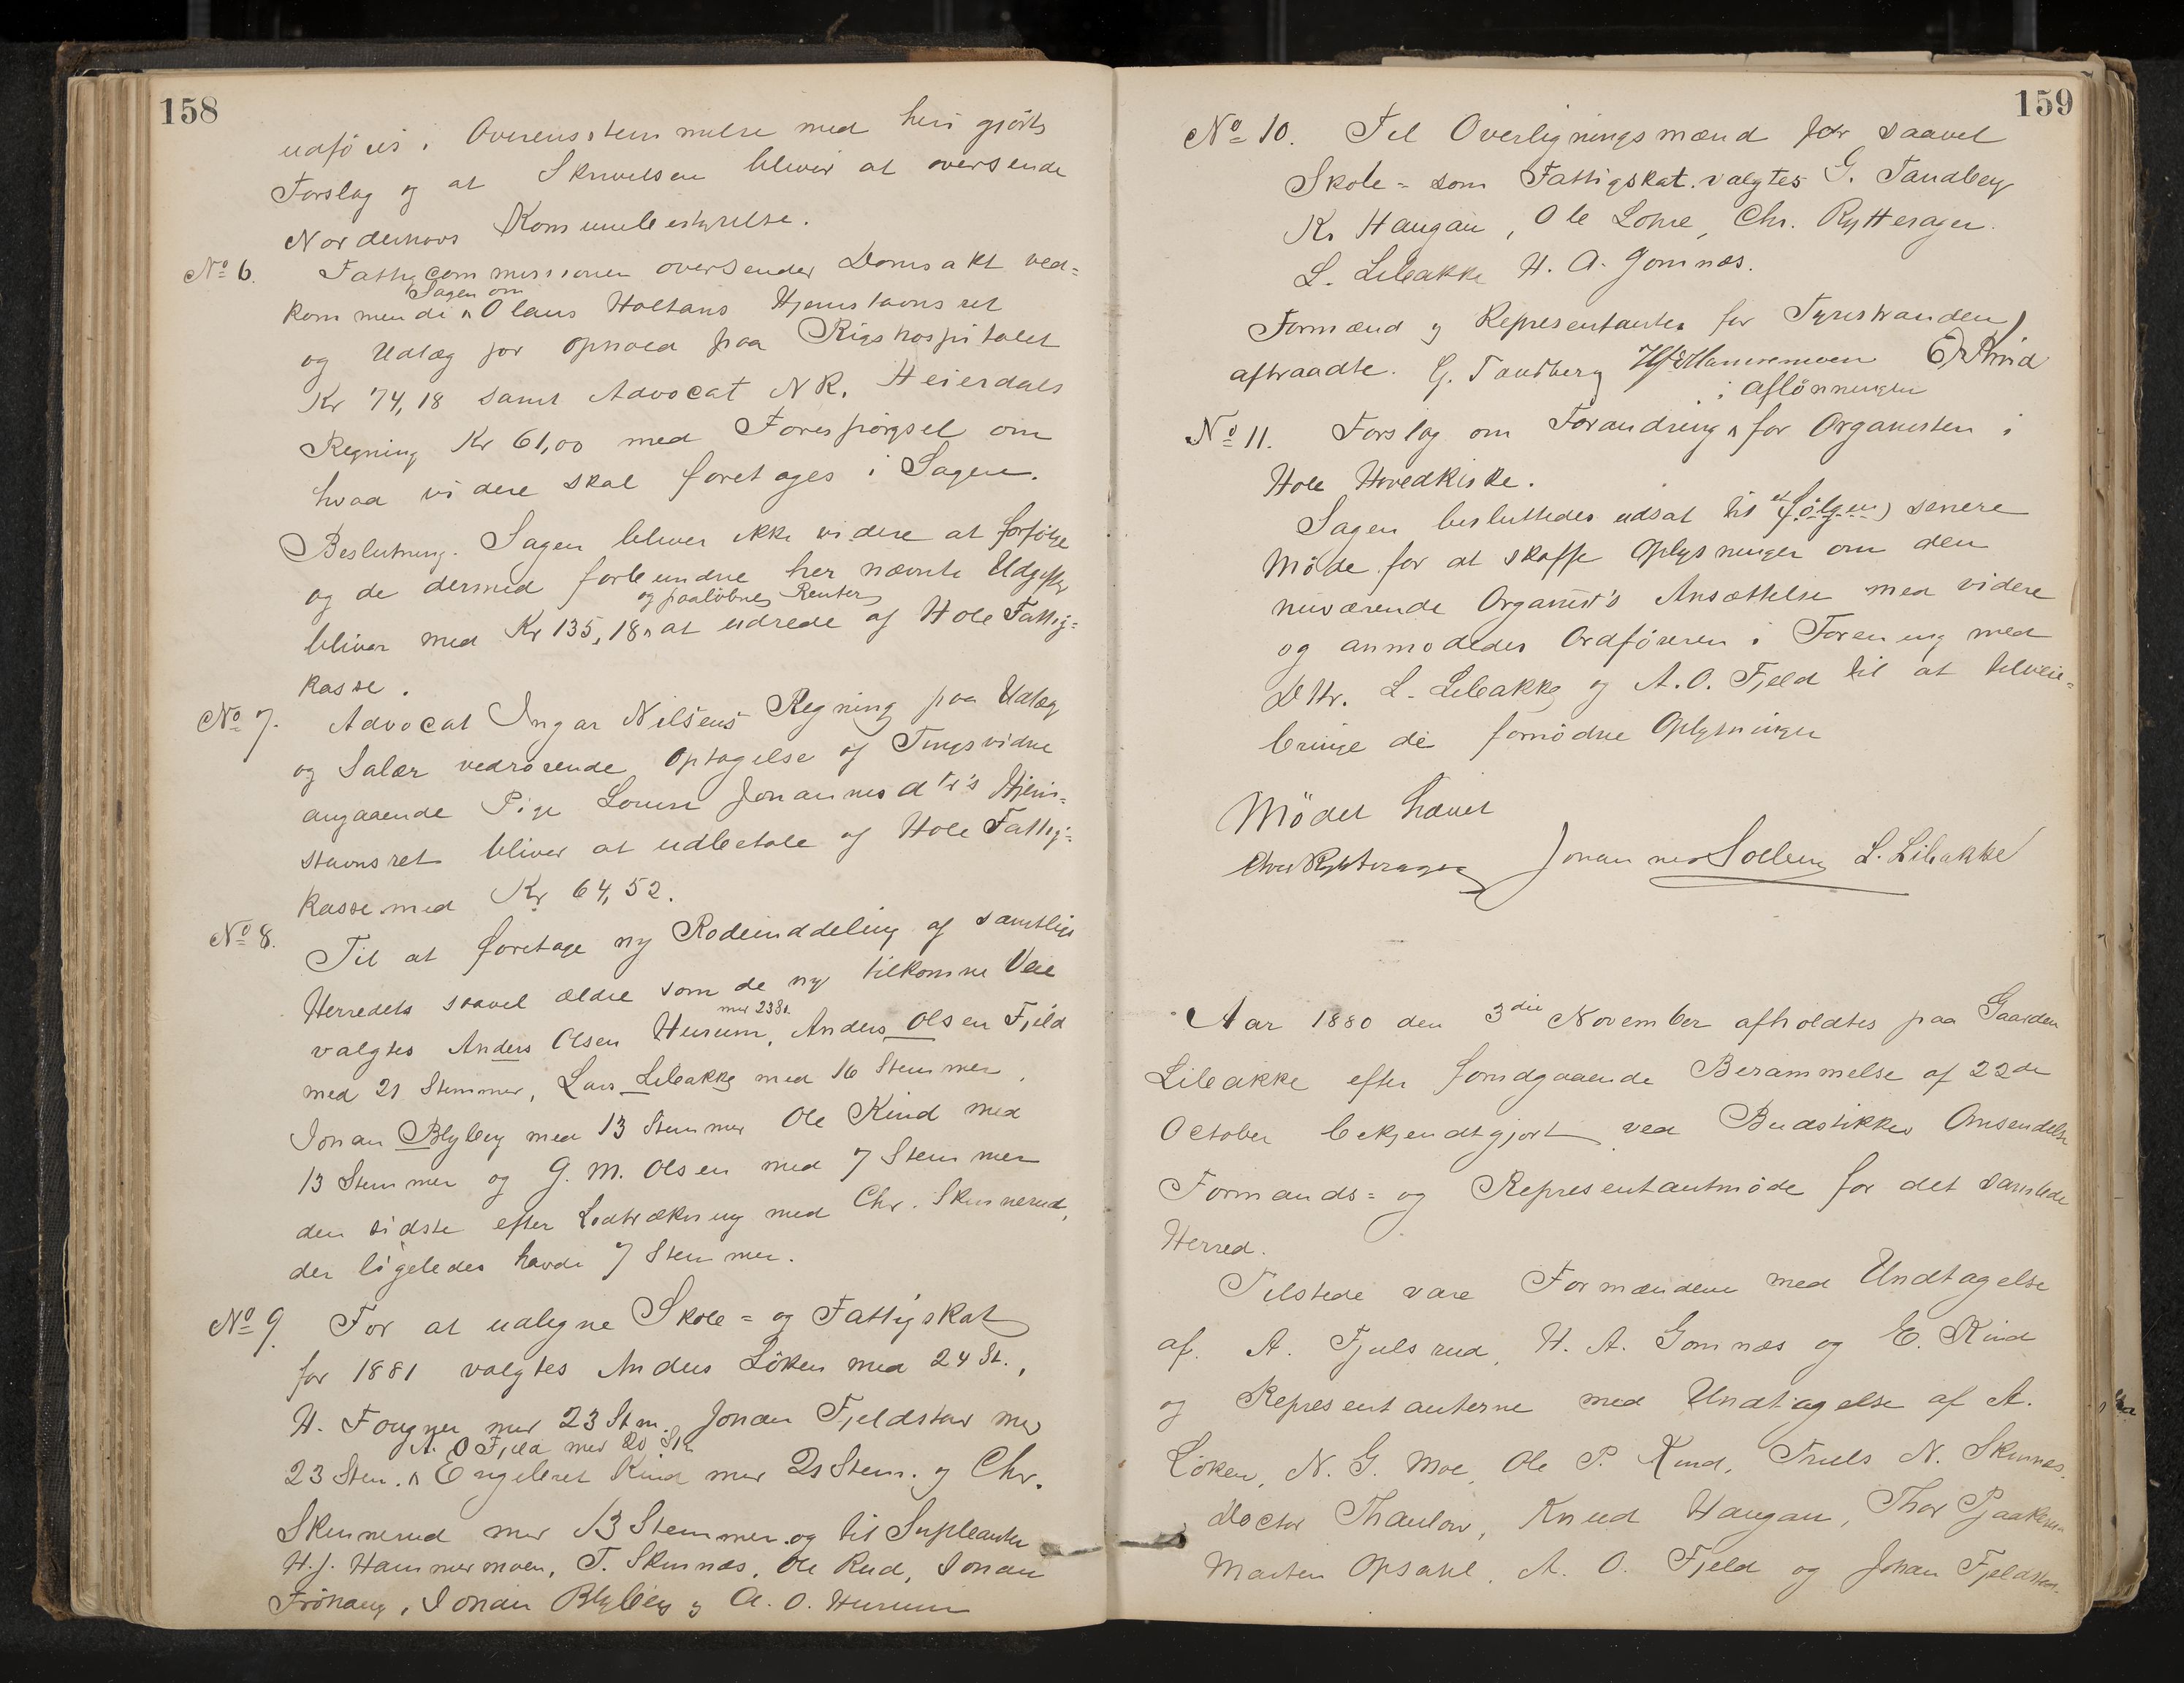 158
udføres i Overensstemmelse med heri gjorte
Forslag og at Skrivelsen bliver at oversende
Norderhovs Kommunebestyrelse.
No 6. Fattigcommissionen oversender Domsakt ved=
kommende Sagen om Olaus Holtans Hjemstavnsret
og Udlæg for Ophold paa Rigshospitalet
Kr 74,18 samt Advocat N R. Heierdals
Regning Kr 61,00 med Forespørgsel om
hvad videre skal foretages i Sagen.
Beslutning. Sagen bliver ikke videre at forfølge
og de dermed forbundne her nævnte Udgifter
og paaløbne Renter
bliver med Kr 135,18 at udrede af Hole Fattig=
kasse.
No 7. Advocat Ingar Nilsens Regning paa Udlæg
og Salær vedrørende Optagelse af Tingsvidne
angaaende Pige Louise Johannesdtr's Hjem=
stavnsret bliver at udbetale af Hole Fattig=
kasse med Kr 64,52.
No 8. Til at foretage ny Rodeinddeling af samtlige
Herredets saavel ældre som de ny tilkomne Veie
valgtes Anders Olsen Hurum med 23 St., Anders Olsen Fjeld
med 21 Stemmer, Lars Libakke med 16 Stemmer,
Johan Blyberg med 13 Stemmer Ole Kind med
13 Stemmer og G. M. Olsen med 7 Stemmer
den sidste efter Lodtrækning med Chr. Skinnerud,
der ligeledes havde 7 Stemmer.
No 9. For at udligne Skole= og Fattigskat
for 1881 valgtes Anders Løken med 24 St.,
H. Fougner med 23 Stm. Johan Fjeldstad med
A. O Fjeld med 20 St.
23 Stem. Engebret Kind med 21 Stem. og Chr.
Skinnerud med 13 Stemmer og til Supleanter
H. J. Hammermoen, T. Skinnes, Ole Rud, Johan
Frøhaug, Johan Blyberg og A. O. Hurum
159
No 10. Til Overligningsmænd for saavel
Skole= som Fattigskat valgtes G. Tandberg
K. Haugan, Ole Lohre, Chr. Rytterager.
L. Libakke H. A. Gomnæs.
Formænd og Repræsentanter for Tyristranden
aftraadte. G. Tandberg H J Hammermoen E Kind
i Aflønningen
No 11. Forslag om Forandring for Organisten i
Hole Hovedkirke.
Sagen besluttedes udsat til et (følgen) senere
Møde for at skaffe Oplysninger om den
nuværende Organist's Ansættelse med videre
og anmodedes Ordføreren i Forening med
DHr. L. Libakke og A. O. Fjeld til at tilveie=
bringe de fornødne Oplysninger
Mødet hævet
Chr Rytterager Johannes Solberg L. Libakke
Aar 1880 den 3die November afholdtes paa Gaarden
Libakke efter forudgaaende Berammelse af 22de
October bekjendtgjort ved Budstikkes Omsendelse
Formands= og Repræsentantmøde for det samlede
Herred.
Tilstede vare Formændene med Undtagelse
af A. Fjulsrud, H. A. Gomnæs og E. Kind
og Repræsentanterne med Undtagelse af A.
Løken, N. G. Moe, Ole P. Kind, Truls N. Skinnes,
Doctor Thaulow, Knud Haugan, Thor Pjaaka
Marten Opsahl, A. O. Fjeld og Johan Fjeldstad.